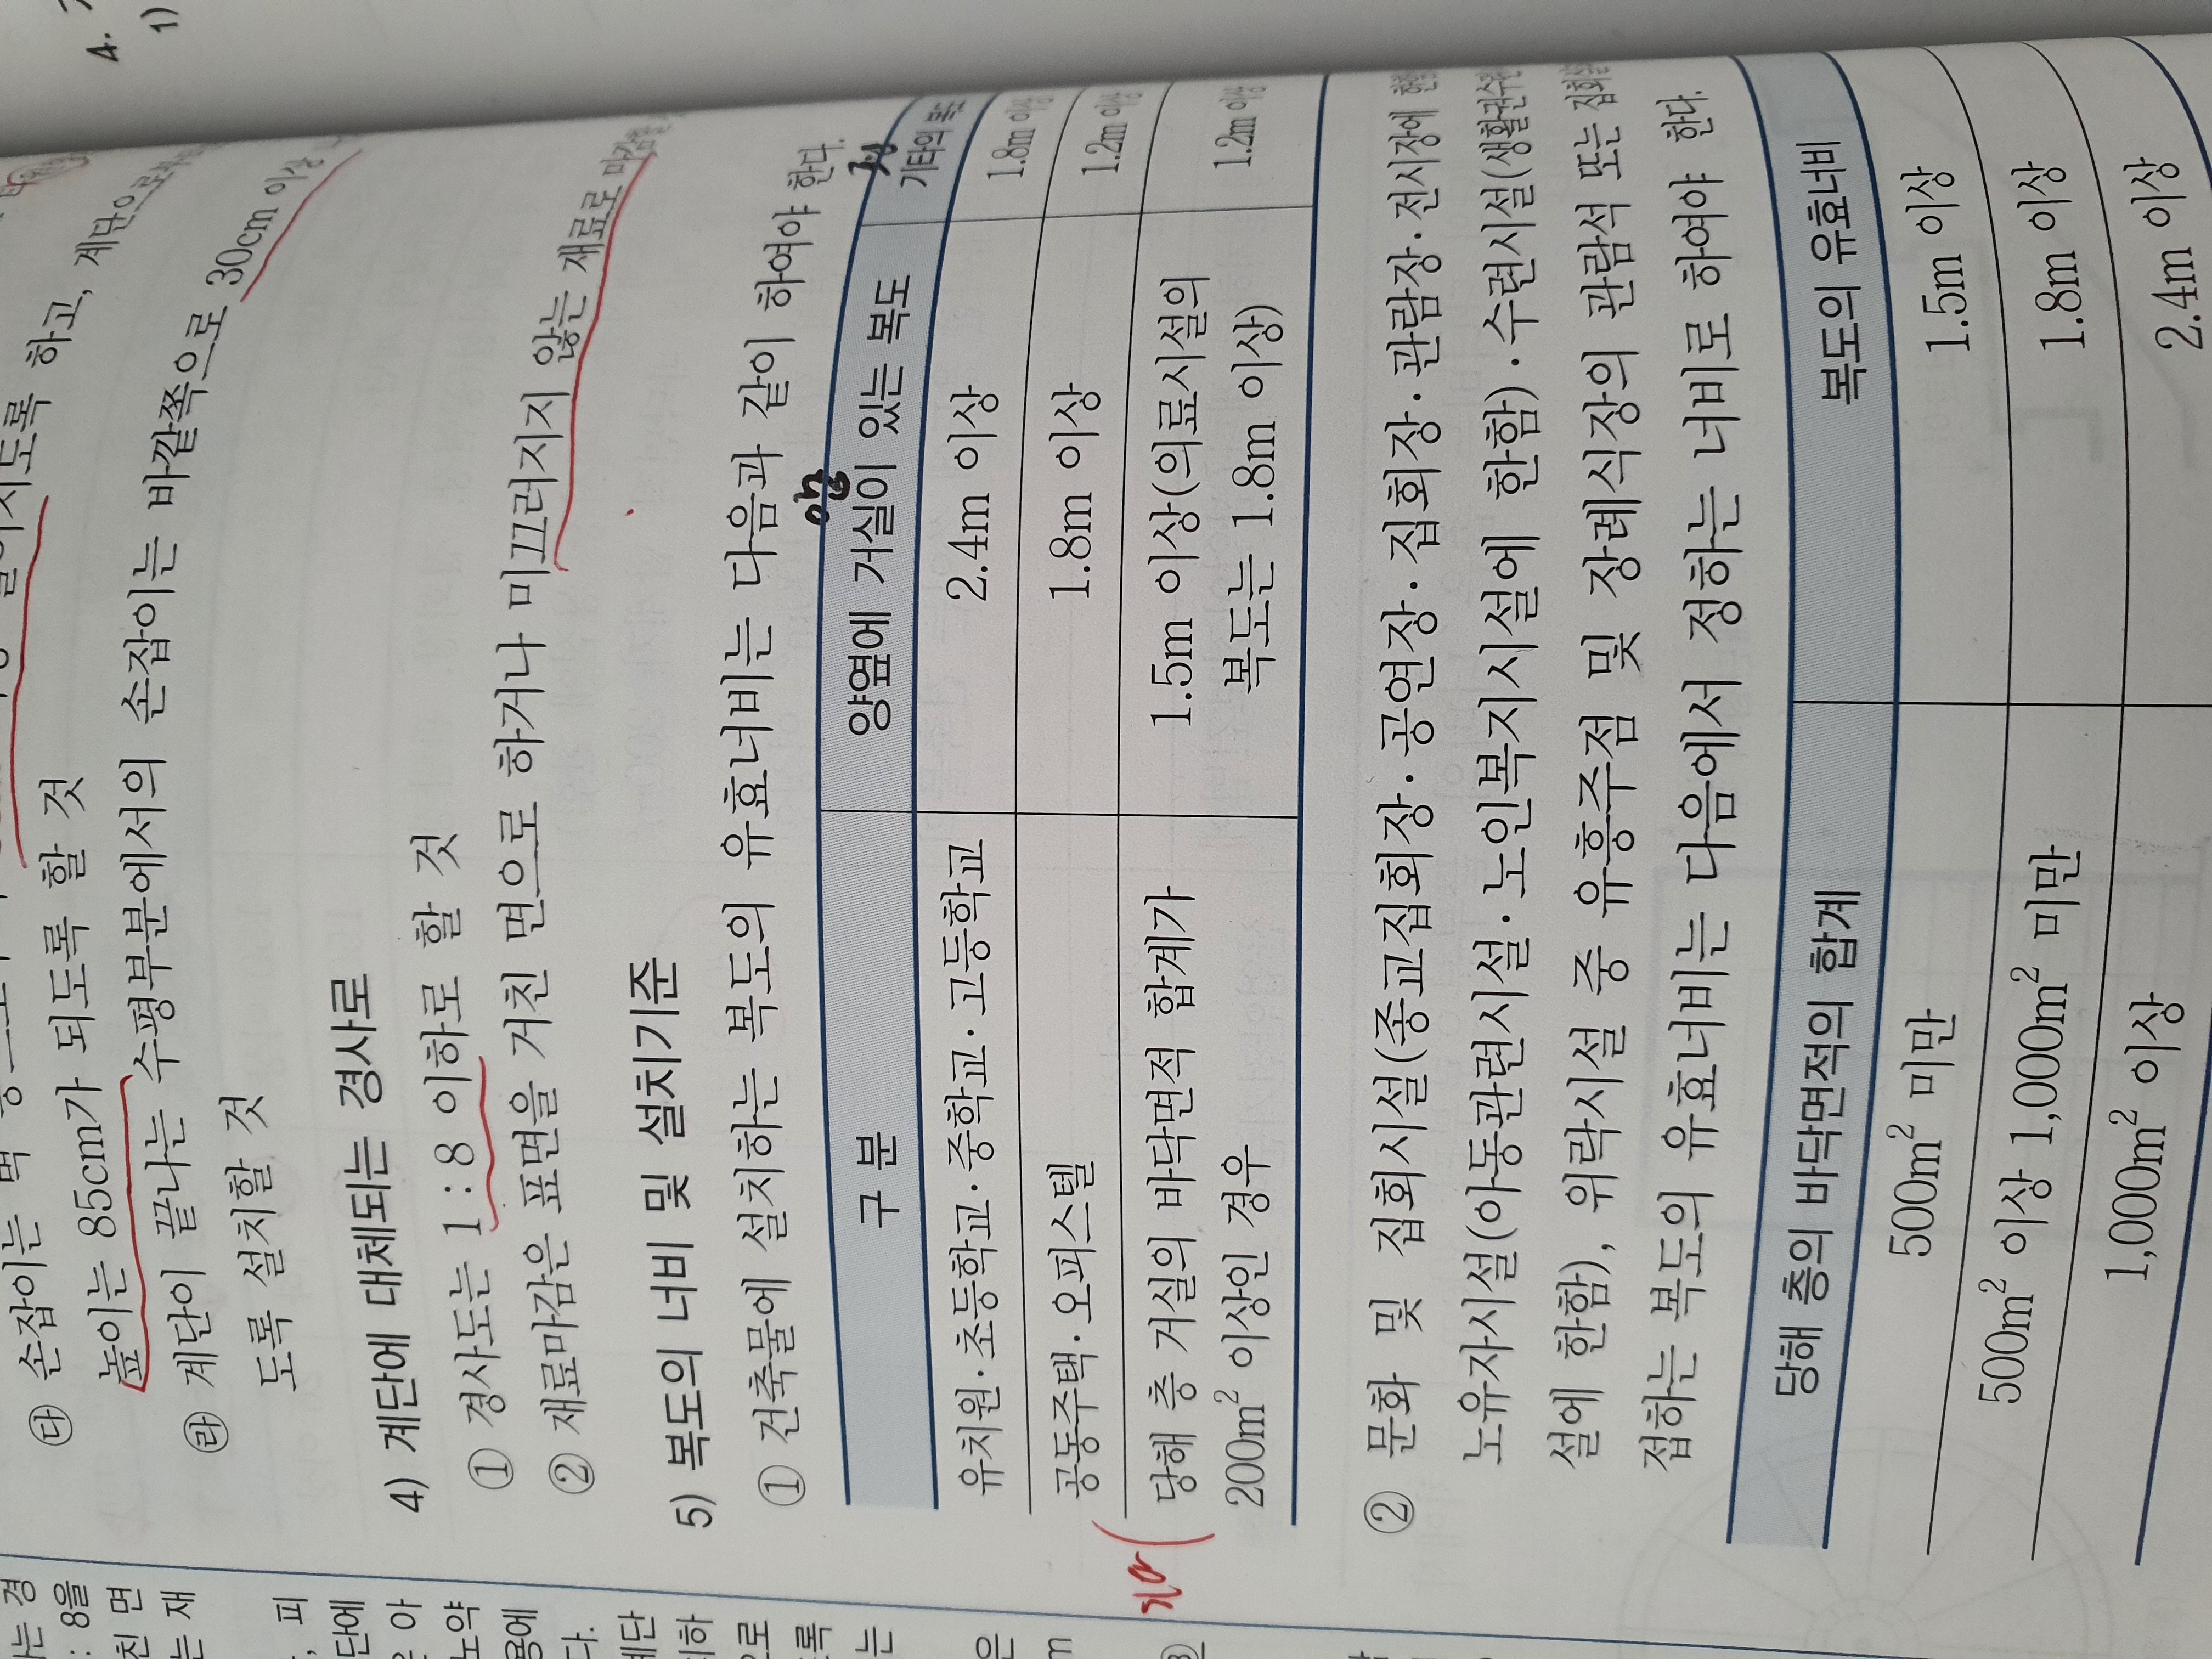 4.
1)
㉰ 손잡이는 벽
높이는 85cm가 되도록 할 것
㉱ 계단이 끝나는 수평부분에서의 손잡이는 바깥쪽으로 30cm 이상
도록 설치할 것
4) 계단에 대체되는 경사로
① 경사도는 1 : 8 이하로 할 것
② 재료마감은 표면을 거친 면으로 하거나 미끄러지지 않는 재료로 마감
5) 복도의 너비 및 설치기준
① 건축물에 설치하는 복도의 유효너비는 다음과 같이 하여야 한다.
구 분 양옆에 거실이 있는 복도 기타의 복
유치원·초등학교·중학교·고등학교 2.4m 이상 1.8m 이상
공동주택·오피스텔 1.8m 이상 1.2m 이상
당해 층 거실의 바닥면적 합계가 1.5m 이상(의료시설의 1.2m 이상
200m² 이상인 경우 복도는 1.8m 이상)
② 문화 및 집회시설(종교집회장·공연장·집회장·관람장·전시장에
노유자시설(아동관련시설·노인복지시설에 한함)·수련시설(생활권수련
설에 한함), 위락시설 중 유흥주점 및 장례식장의 관람석 또는 집회실
접하는 복도의 유효너비는 다음에서 정하는 너비로 하여야 한다.
당해 층의 바닥면적의 합계 복도의 유효너비
500m² 미만 1.5m 이상
500m² 이상 1,000m² 미만 1.8m 이상
1,000m² 이상 2.4m 이상